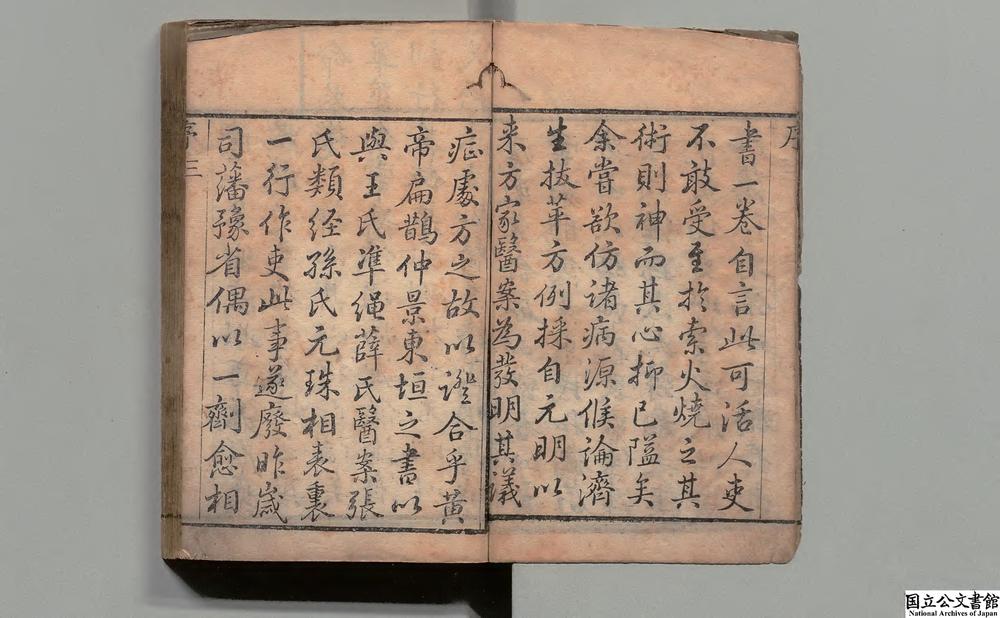 序
書一卷自言此可活人吏
不敢受至於索火燒之其
術則神而其心抑已隘矣
余嘗欲仿諸病源候論濟
生拔萃方例採自元明以
来方家醫案為發明其議
症處方之故以證合乎黃
帝扁鵲仲景東垣之書以
與王氏準繩薛氏醫案張
氏類經孫氏元珠相表裏
一行作吏此事遂廢昨歲
司藩豫省偶以一劑愈相
序 三
国立公文書館
National Archives of Japan